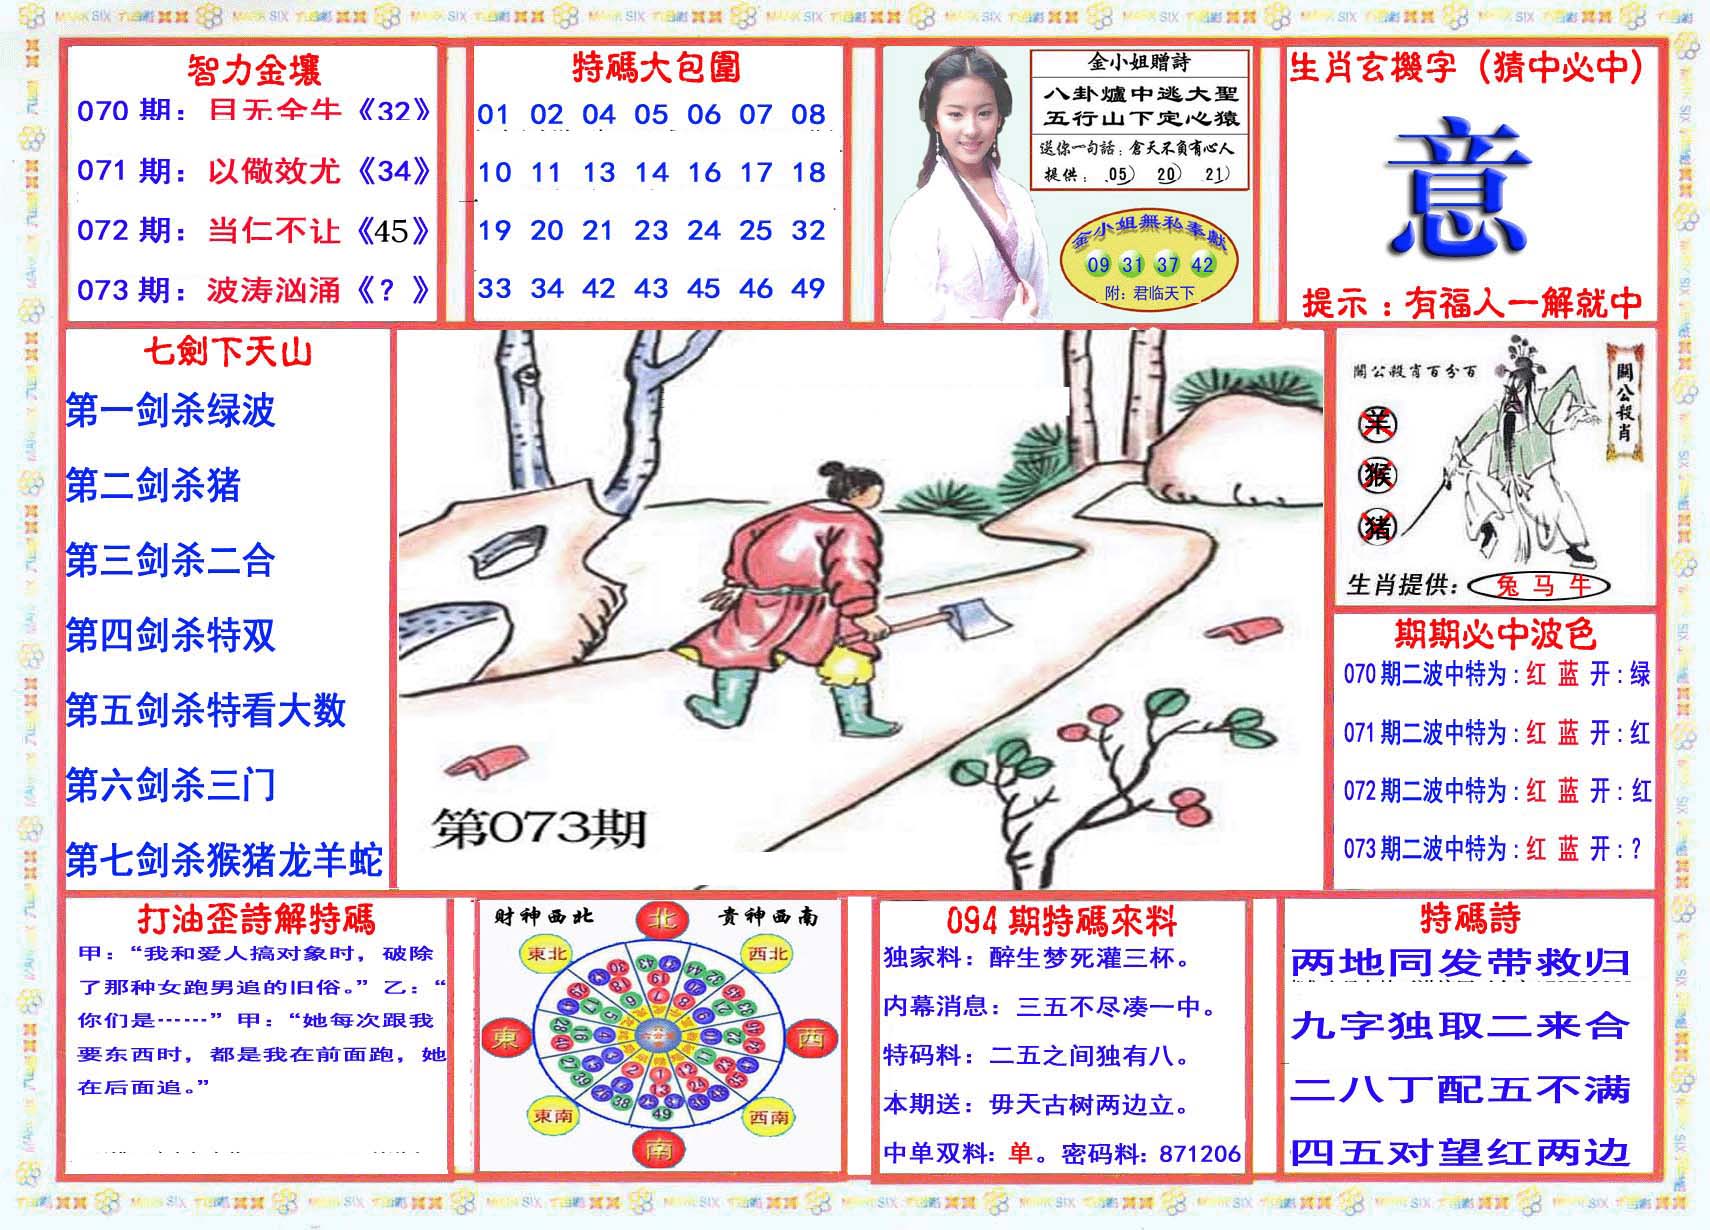 智力金壤
070 期：目无全牛《32》
071 期：以儆效尤《34》
072 期：当仁不让《45》
073 期：波涛汹涌《？》
特碼大包圍
01 02 04 05 06 07 08
10 11 13 14 16 17 18
19 20 21 23 24 25 32
33 34 42 43 45 46 49
金小姐贈詩
八卦爐中逃大聖
五行山下定心猿
送你一句話：倉天不負有心人
提供：05） 20） 21）
金小姐無私奉獻
09 31 37 42
附：君临天下
生肖玄機字（猜中必中）
意
提示：有福人一解就中
七劍下天山
第一剑杀绿波
第二剑杀猪
第三剑杀二合
第四剑杀特双
第五剑杀特看大数
第六剑杀三门
第七剑杀猴猪龙羊蛇
第073期
關公殺肖百分百
關公殺肖
羊
猴
猪
生肖提供：兔 马 牛
期期必中波色
070期二波中特为：红 蓝 开：绿
071期二波中特为：红 蓝 开：红
072期二波中特为：红 蓝 开：红
073期二波中特为：红 蓝 开：？
打油歪詩解特碼
甲：“我和爱人搞对象时，破除
了那种女跑男追的旧俗。”乙：“
你们是……”甲：“她每次跟我
要东西时，都是我在前面跑，她
在后面追。”
財神西北
貴神西南
北
東北
西北
東
西
東南
西南
南
094 期特碼來料
独家料：醉生梦死灌三杯。
内幕消息：三五不尽凑一中。
特码料：二五之间独有八。
本期送：毋天古树两边立。
中单双料：单。密码料：871206
特碼詩
两地同发带救归
九字独取二来合
二八丁配五不满
四五对望红两边